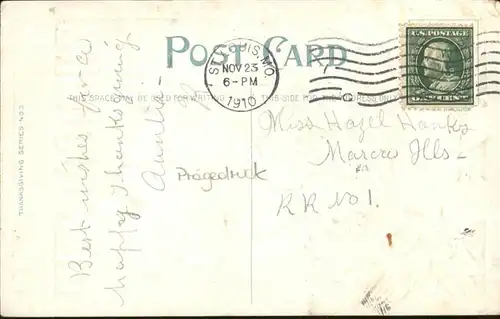 POST CARD
ST. LOUIS, MO.
NOV 23
6-PM
1910
U.S. POSTAGE
THIS SPACE MAY BE USED FOR WRITING
THIS SIDE IS FOR THE ADDRESS
THANKSGIVING SERIES NO.3
Best wishes for a
happy Thanksgiving
Auntie
Prägedruck
Miss Hazel Hanks
Marcoe Ills-
RR No 1.